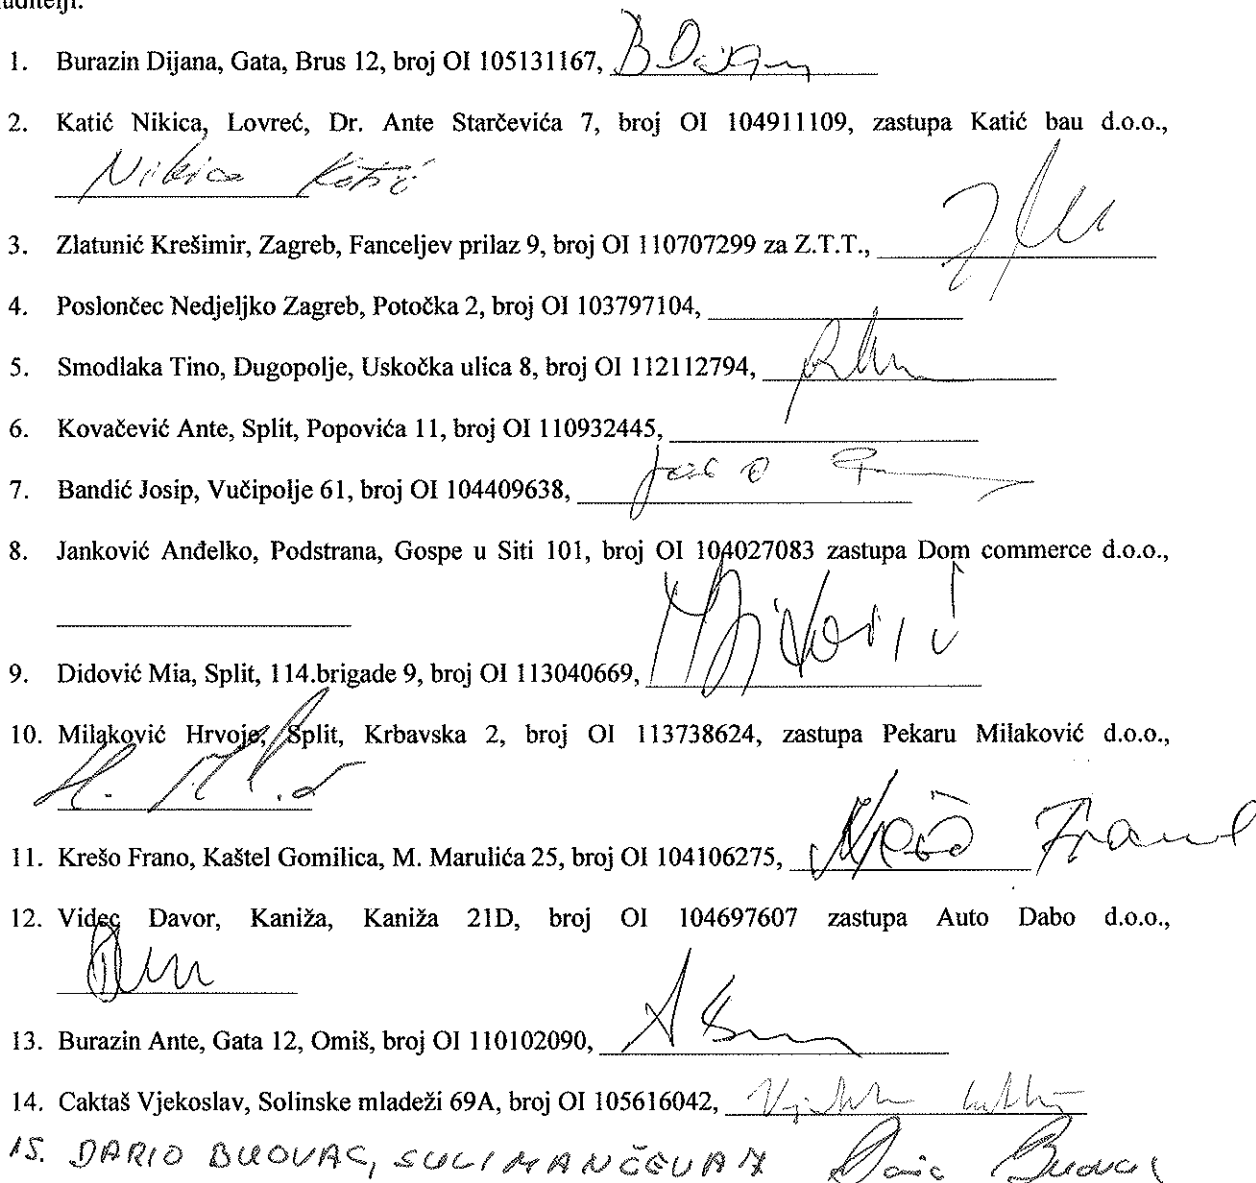 1. Burazin Dijana, Gata, Brus 12, broj OI 105131167,
2. Katić Nikica, Lovreć, Dr. Ante Starčevića 7, broj OI 104911109, zastupa Katić bau d.o.o.,
Nikica Katić
3. Zlatunić Krešimir, Zagreb, Fanceljev prilaz 9, broj OI 110707299 za Z.T.T.,
4. Poslončec Nedjeljko Zagreb, Potočka 2, broj OI 103797104,
5. Smodlaka Tino, Dugopolje, Uskočka ulica 8, broj OI 112112794,
6. Kovačević Ante, Split, Popovića 11, broj OI 110932445,
7. Bandić Josip, Vučipolje 61, broj OI 104409638,
8. Janković Anđelko, Podstrana, Gospe u Siti 101, broj OI 104027083 zastupa Dom commerce d.o.o.,
9. Didović Mia, Split, 114.brigade 9, broj OI 113040669,
10. Milaković Hrvoje, Split, Krbavska 2, broj OI 113738624, zastupa Pekaru Milaković d.o.o.,
11. Krešo Frano, Kaštel Gomilica, M. Marulića 25, broj OI 104106275,
12. Videc Davor, Kaniža, Kaniža 21D, broj OI 104697607 zastupa Auto Dabo d.o.o.,
13. Burazin Ante, Gata 12, Omiš, broj OI 110102090,
14. Caktaš Vjekoslav, Solinske mladeži 69A, broj OI 105616042,
15. DARIO BUOVAC,